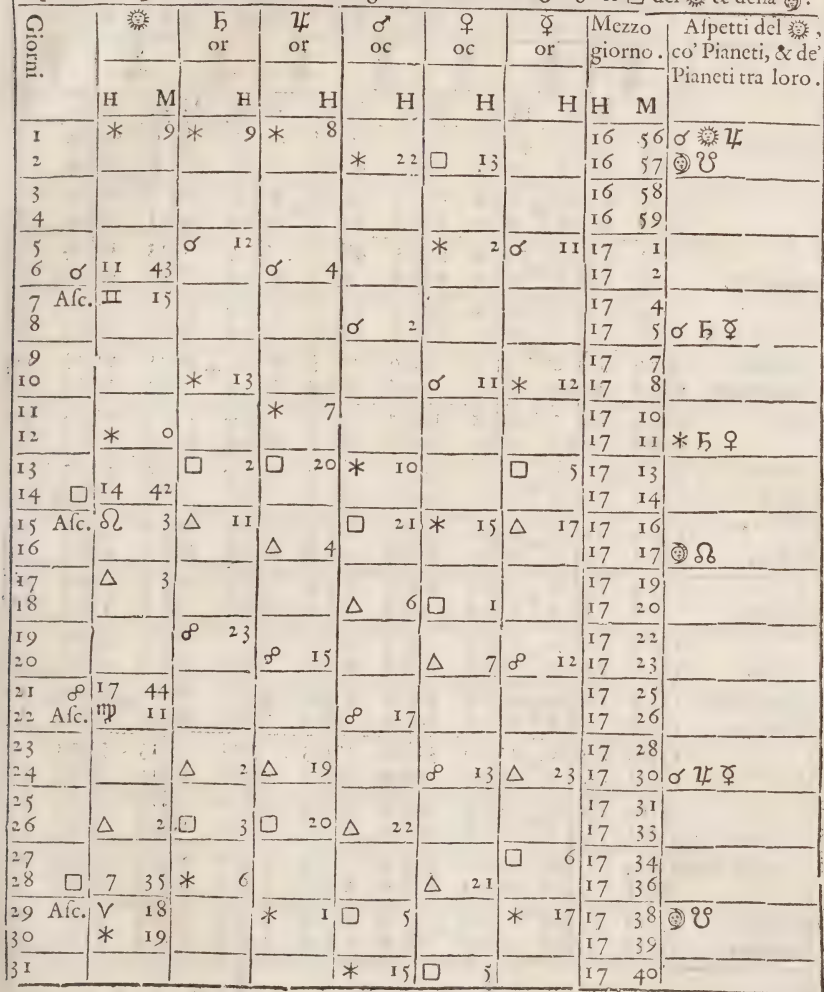 Giorni ☼ ♄ ♃ ♂ ♀ ☿ Mezzo Aſpetti del ☼,
or or oc oc or giorno. co' Pianeti, & de'
Pianeti tra loro.
H M H H H H H H M
1 ⚹ 9 ⚹ 9 ⚹ 8 16 56 ☌ ☼ ♃
2 ⚹ 22 □ 13 16 57 ☽ ☋
3 16 58
4 16 59
5 ☌ 12 ⚹ 2 ☌ 11 17 1
6 ☌ 11 43 ☌ 4 17 2
7 Aſc. ♊ 15 17 4
8 ☌ 2 17 5 ☌ ♄ ☿
9 17 7
10 ⚹ 13 ☌ 11 ⚹ 12 17 8
11 ⚹ 7 17 10
12 ⚹ 0 17 11 ⚹ ♄ ♀
13 □ 2 □ 20 ⚹ 10 □ 5 17 13
14 □ 14 42 17 14
15 Aſc. ♌ 3 △ 11 □ 21 ⚹ 15 △ 17 17 16
16 △ 4 17 17 ☽ ☊
17 △ 3 17 19
18 △ 6 □ 1 17 20
19 ☍ 23 17 22
20 ☍ 15 △ 7 ☍ 12 17 23
21 ☍ 17 44 17 25
22 Aſc. ♍ 11 ☍ 17 17 26
23 17 28
24 △ 2 △ 19 ☍ 13 △ 23 17 30 ☌ ♃ ☿
25 17 31
26 △ 2 □ 3 □ 20 △ 22 17 33
27 □ 6 17 34
28 □ 7 35 ⚹ 6 △ 21 17 36
29 Aſc. ♈ 18 ⚹ 1 □ 5 ⚹ 17 17 38 ☽ ☋
30 ⚹ 19 17 39
31 ⚹ 15 □ 5 17 40